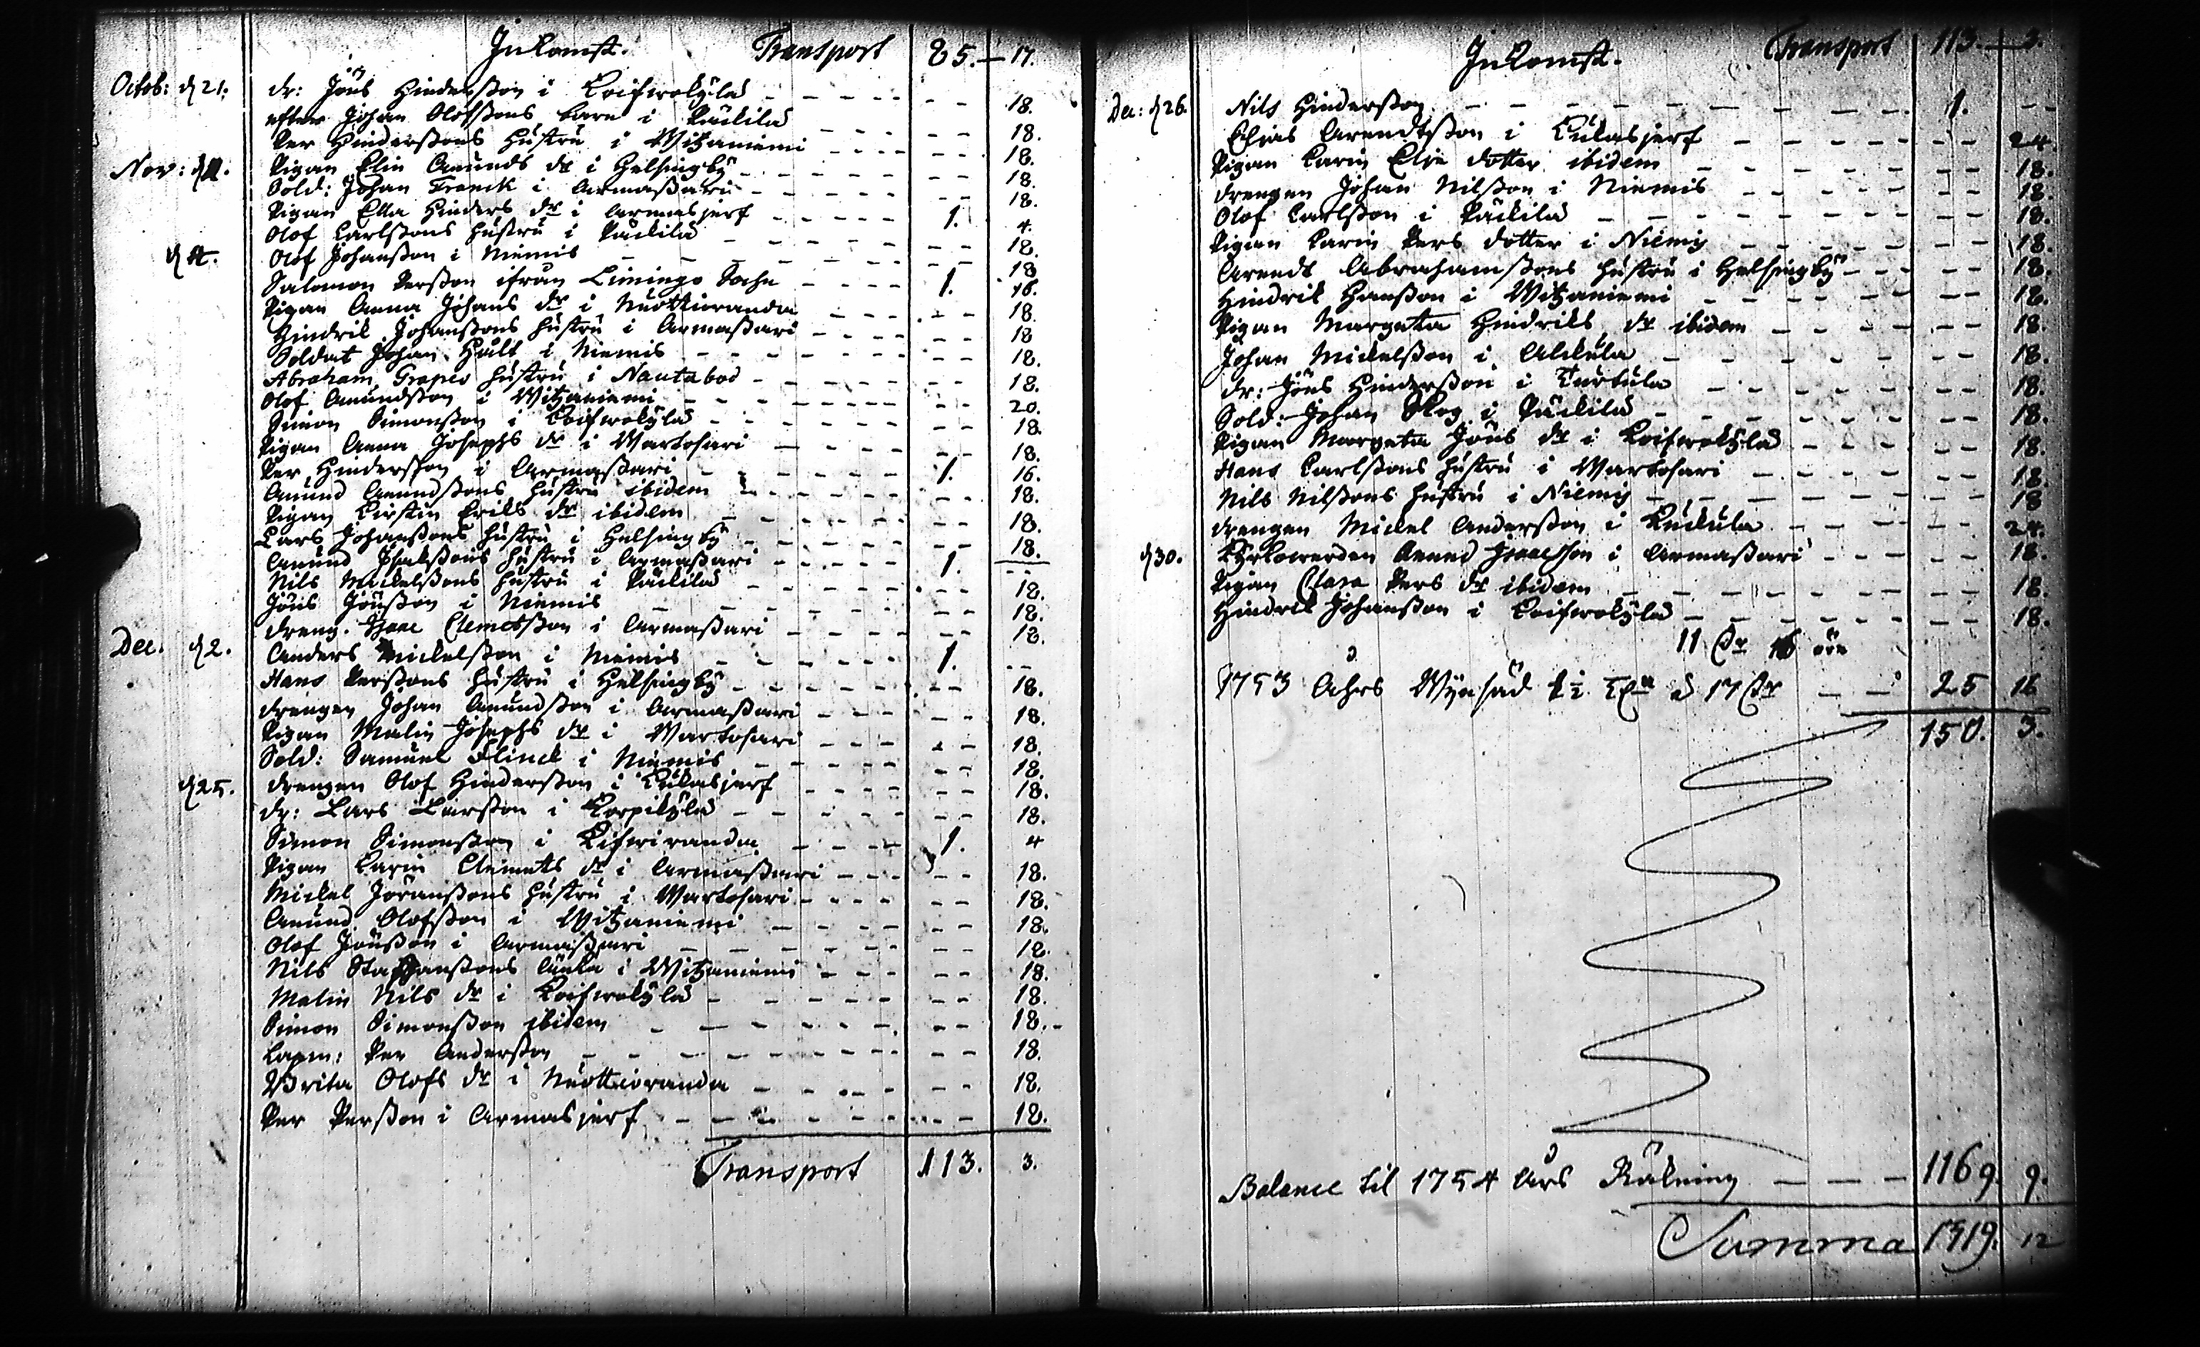 Inkomst. Transport 85.— 17.
Octob: d 21. dr: Jöns Hindersson i Koifwokÿlä - - - - 18.
efter Johan Olofssons barn i Päckilä - - - - 18.
Per Hinderssons hustru i Witzaniemi - - - - 18.
Nov: d Pigan Elin Amunds dr i Helsingbÿ - - - - 18.
Sold: Johan Franck i Armassari - - - - 18.
Pigan Ella Hinders dr i Armasjerf - - - - 1. 4.
Olof Carlssons hustru i Päckilä - - - - 18.
Olof Johansson i Niemis - - - - 18
Salomon Persson ifrån Limingo Sochn - - - - 1. 16.
Pigan Anna Johans dr i Nuottioranda - - - - 18.
Hindrik Johanssons hustru i Armassari - - - - 18
Soldat Johan Hult i Niemis - - - - 18.
Abraham Grapes hustru i Nautabod - - - - 18.
Olof Amundsson i Witzaniemi - - - - 20.
Simon Simonsson i Koifwokÿlä - - - - 18.
Pigan Anna Josephs dr i Martosari - - - - 18.
Per Hindersson i Armassari - - - - 1. 16.
Amund Amundssons hustru ibidem - - - - 18.
Pigan Kirstin Eriks dr ibidem - - - - 18.
Lars Johanssons hustru i Helsingbÿ - - - - 18.
Amund Jsakssons hustru i Armassari - - - - 1. - -
Nils Mickelssons hustru i Päckilä - - - - 18.
Jöns Jönsson i Niemis - - - - 18.
dreng. Isaac Clemetsson i Armassari - - - - 18.
Dec. d 2. Anders Mickelsson i Niemis - - - - 1. - -
Hans Perssons hustru i Helsingbÿ - - - - 18.
drengen Johan Amundsson i Armassari - - - - 18.
Pigan Malin Josephs dr i Martosari - - - - 18.
Sold: Samuel Flinck i Niemis - - - - 18.
d 25. drengen Olof Hindersson i Kukasjerf - - - - 18.
dr: Lars Larsson i Korpikÿlä - - - - 18.
Simon Simonsson i Kifwiranda - - - - 1. 4
Pigan Carin Clemets dr i Armassari - - - 18.
Mickel Joranssons hustru i Martosari - - - - 18.
Amund Olofsson i Witzaniemi - - - - 18.
Olof Jönsson i Armassari - - - - 18.
Nils Staffanssons änka i Witzaniemi - - - - 18.
Malin Nils dr i Koifwokÿlä - - - - 18.
Simon Simonsson ibidem - - - - 18.
Lapm: Per Andersson - - - - 18.
Brita Olofs dr i Nuottioranda - - - - 18.
Per Persson i Armasjerf - - - - 18.
Transport 113. 3.
Inkomst. Transport 113.— 3.
Dec: d 26. Nils Hindersson. - - - - 1. - -
Elias Arendtsson i Kukasjerf - - - - 24.
Pigan Carin Elie dotter ibidem - - - - 18.
drengen Johan Nilsson i Niemis - - - - 18.
Olof Carlsson i Päckilä - - - - 18.
Pigan Carin Pers dotter i Niemis - - - - 18.
Arendt Abrahamssons hustru i Helsingbÿ - - - - 18.
Hindrik Hansson i Witzaniemi - - - - 18.
Pigan Margeta Hindriks dr ibidem - - - - 18.
Johan Mickelsson i Alckula - - - - 18.
dr: Jöns Hindersson i Turtula - - - - 18.
Sold: Johan Skog i Päckilä - - - - 18.
Pigan Margeta Jöns dr i Koifwokÿlä - - - - 18.
Hans Carlssons hustru i Martosari - - - - 18.
Nils Nilssons hustru i Niemis - - - - 18
drengen Mickel Andersson i Kuckula - - - - 24.
d 30. Kÿrkowerden Amund Isaacsson i Armassari - - - - 18.
Pigan Clara Pers dr ibidem - - - - 18.
Hindrik Johansson i Koifwokÿlä - - - - 18.
11 dr 16 öre
1753 Ahrs 1½ à 17 dr - - 25 16
150. 3.
Balance til 1754 Års Räkning - - - - 1169. 9.
Summa 1319. 12